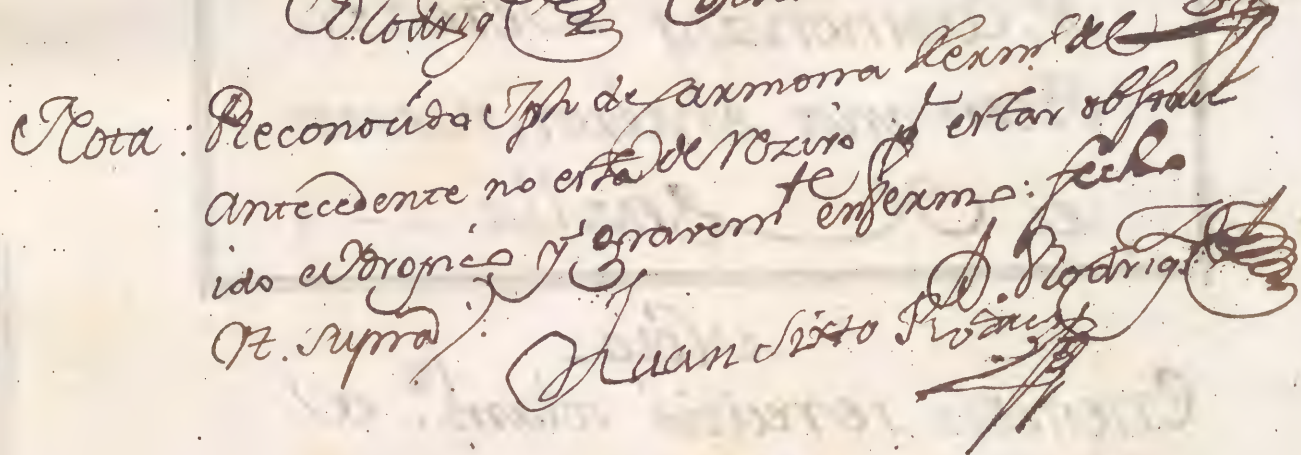 Rodrig
Nota: Reconocido Jph de Carmona herm.º del
antecedente no esta de recivo p.r estar obstru
ido eidropico y gravem.te enfermo: fecho
Ut. supra
D. Rodrig.
Juan Sixto Rodrig